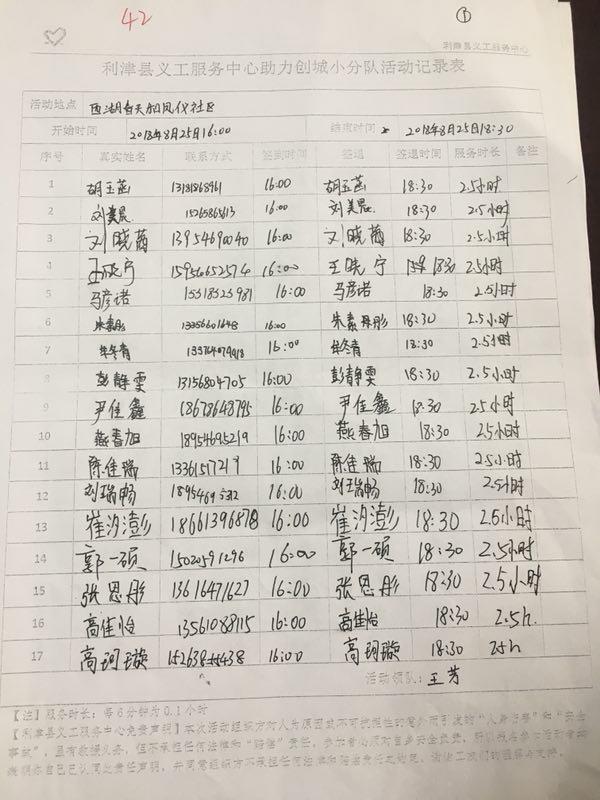 42
①
利津县义工服务中心
利津县义工服务中心助力创城小分队活动记录表
活动地点
开始时间 2018年8月25日16:00 结束时间 2018年8月25日18:30
序号 真实姓名 联系方式 签到时间 签退 签退时间 服务时长 备注
1 胡玉菡 13181868961 16:00 胡玉菡 18:30 2.5小时
2 刘美晨 16:00 刘美晨 18:30 2.5小时
3 刘晓菡 13954690040 16:00 刘晓菡 18:30 2.5小时
4 王晓宁 15956652574 16:00 王晓宁 18:30 2.5小时
5 马彦诺 15318523981 16:00 马彦诺 18:30 2.5小时
6 朱素彤 13356601648 16:00 朱素彤 18:30 2.5小时
7 牟冬青 16:00 牟冬青 18:30 2.5小时
8 彭静雯 13156804705 16:00 彭静雯 18:30 2.5小时
9 尹佳鑫 18678648795 16:00 尹佳鑫 18:30 2.5小时
10 燕春旭 18954695219 16:00 燕春旭 18:30 2.5小时
11 陈佳瑞 13361517219 16:00 陈佳瑞 18:30 2.5小时
12 刘瑞畅 16:00 刘瑞畅 18:30 2.5小时
13 崔汐澎 18661396878 16:00 崔汐澎 18:30 2.5小时
14 郭一硕 15020591296 16:00 郭一硕 18:30 2.5小时
15 张恩彤 13616471627 16:00 张恩彤 18:30 2.5小时
16 高佳怡 13561088115 16:00 高佳怡 18:30 2.5h.
17 高珂璇 16:00 高珂璇 18:30 2.5h
活动领队：王芳
【注】服务时长：每6分钟为0.1小时
【利津县义工服务中心免责声明】本次活动组织方对人为原因或不可抗拒性的意外而引发的“人身伤害”和“安全
事故”，虽有救援义务，但不承担任何法律和“赔偿”责任，